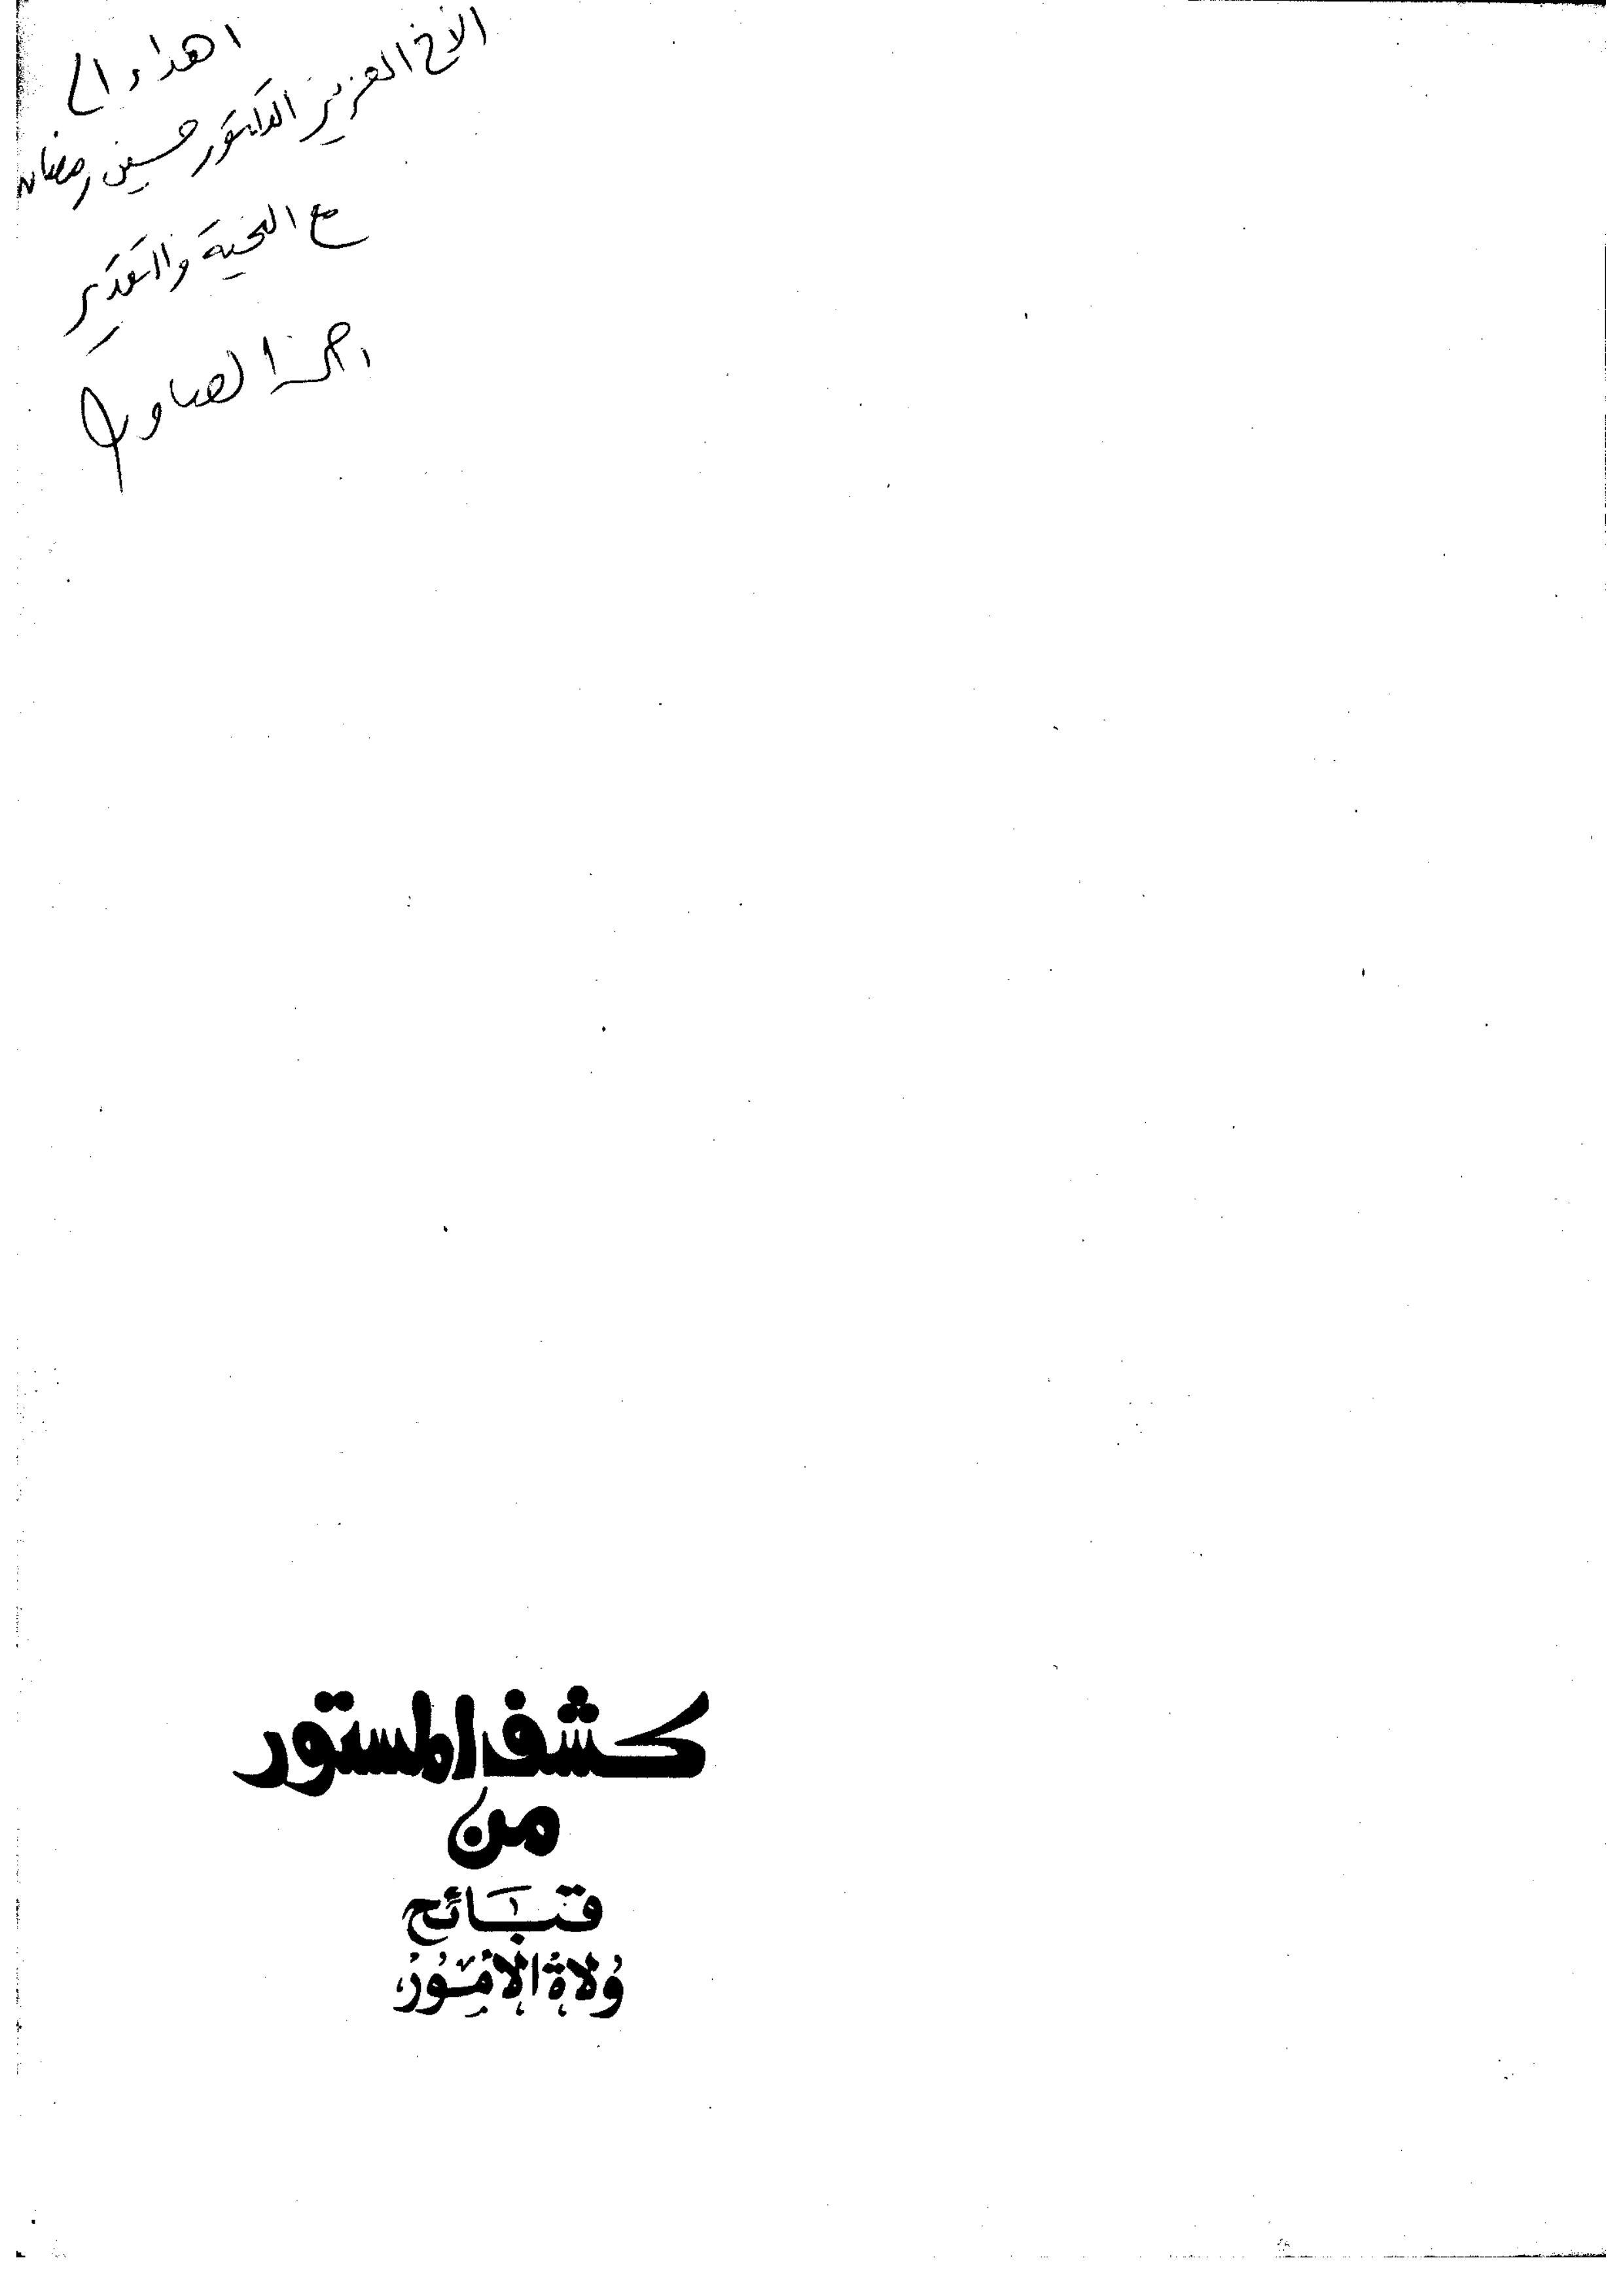 اهداء الى
الاخ العزيز الدكتور حسين رمضان
مع التحية والتقدير
الصاوي
كشف المستور
من
قبائح
وُلاة الأمُور